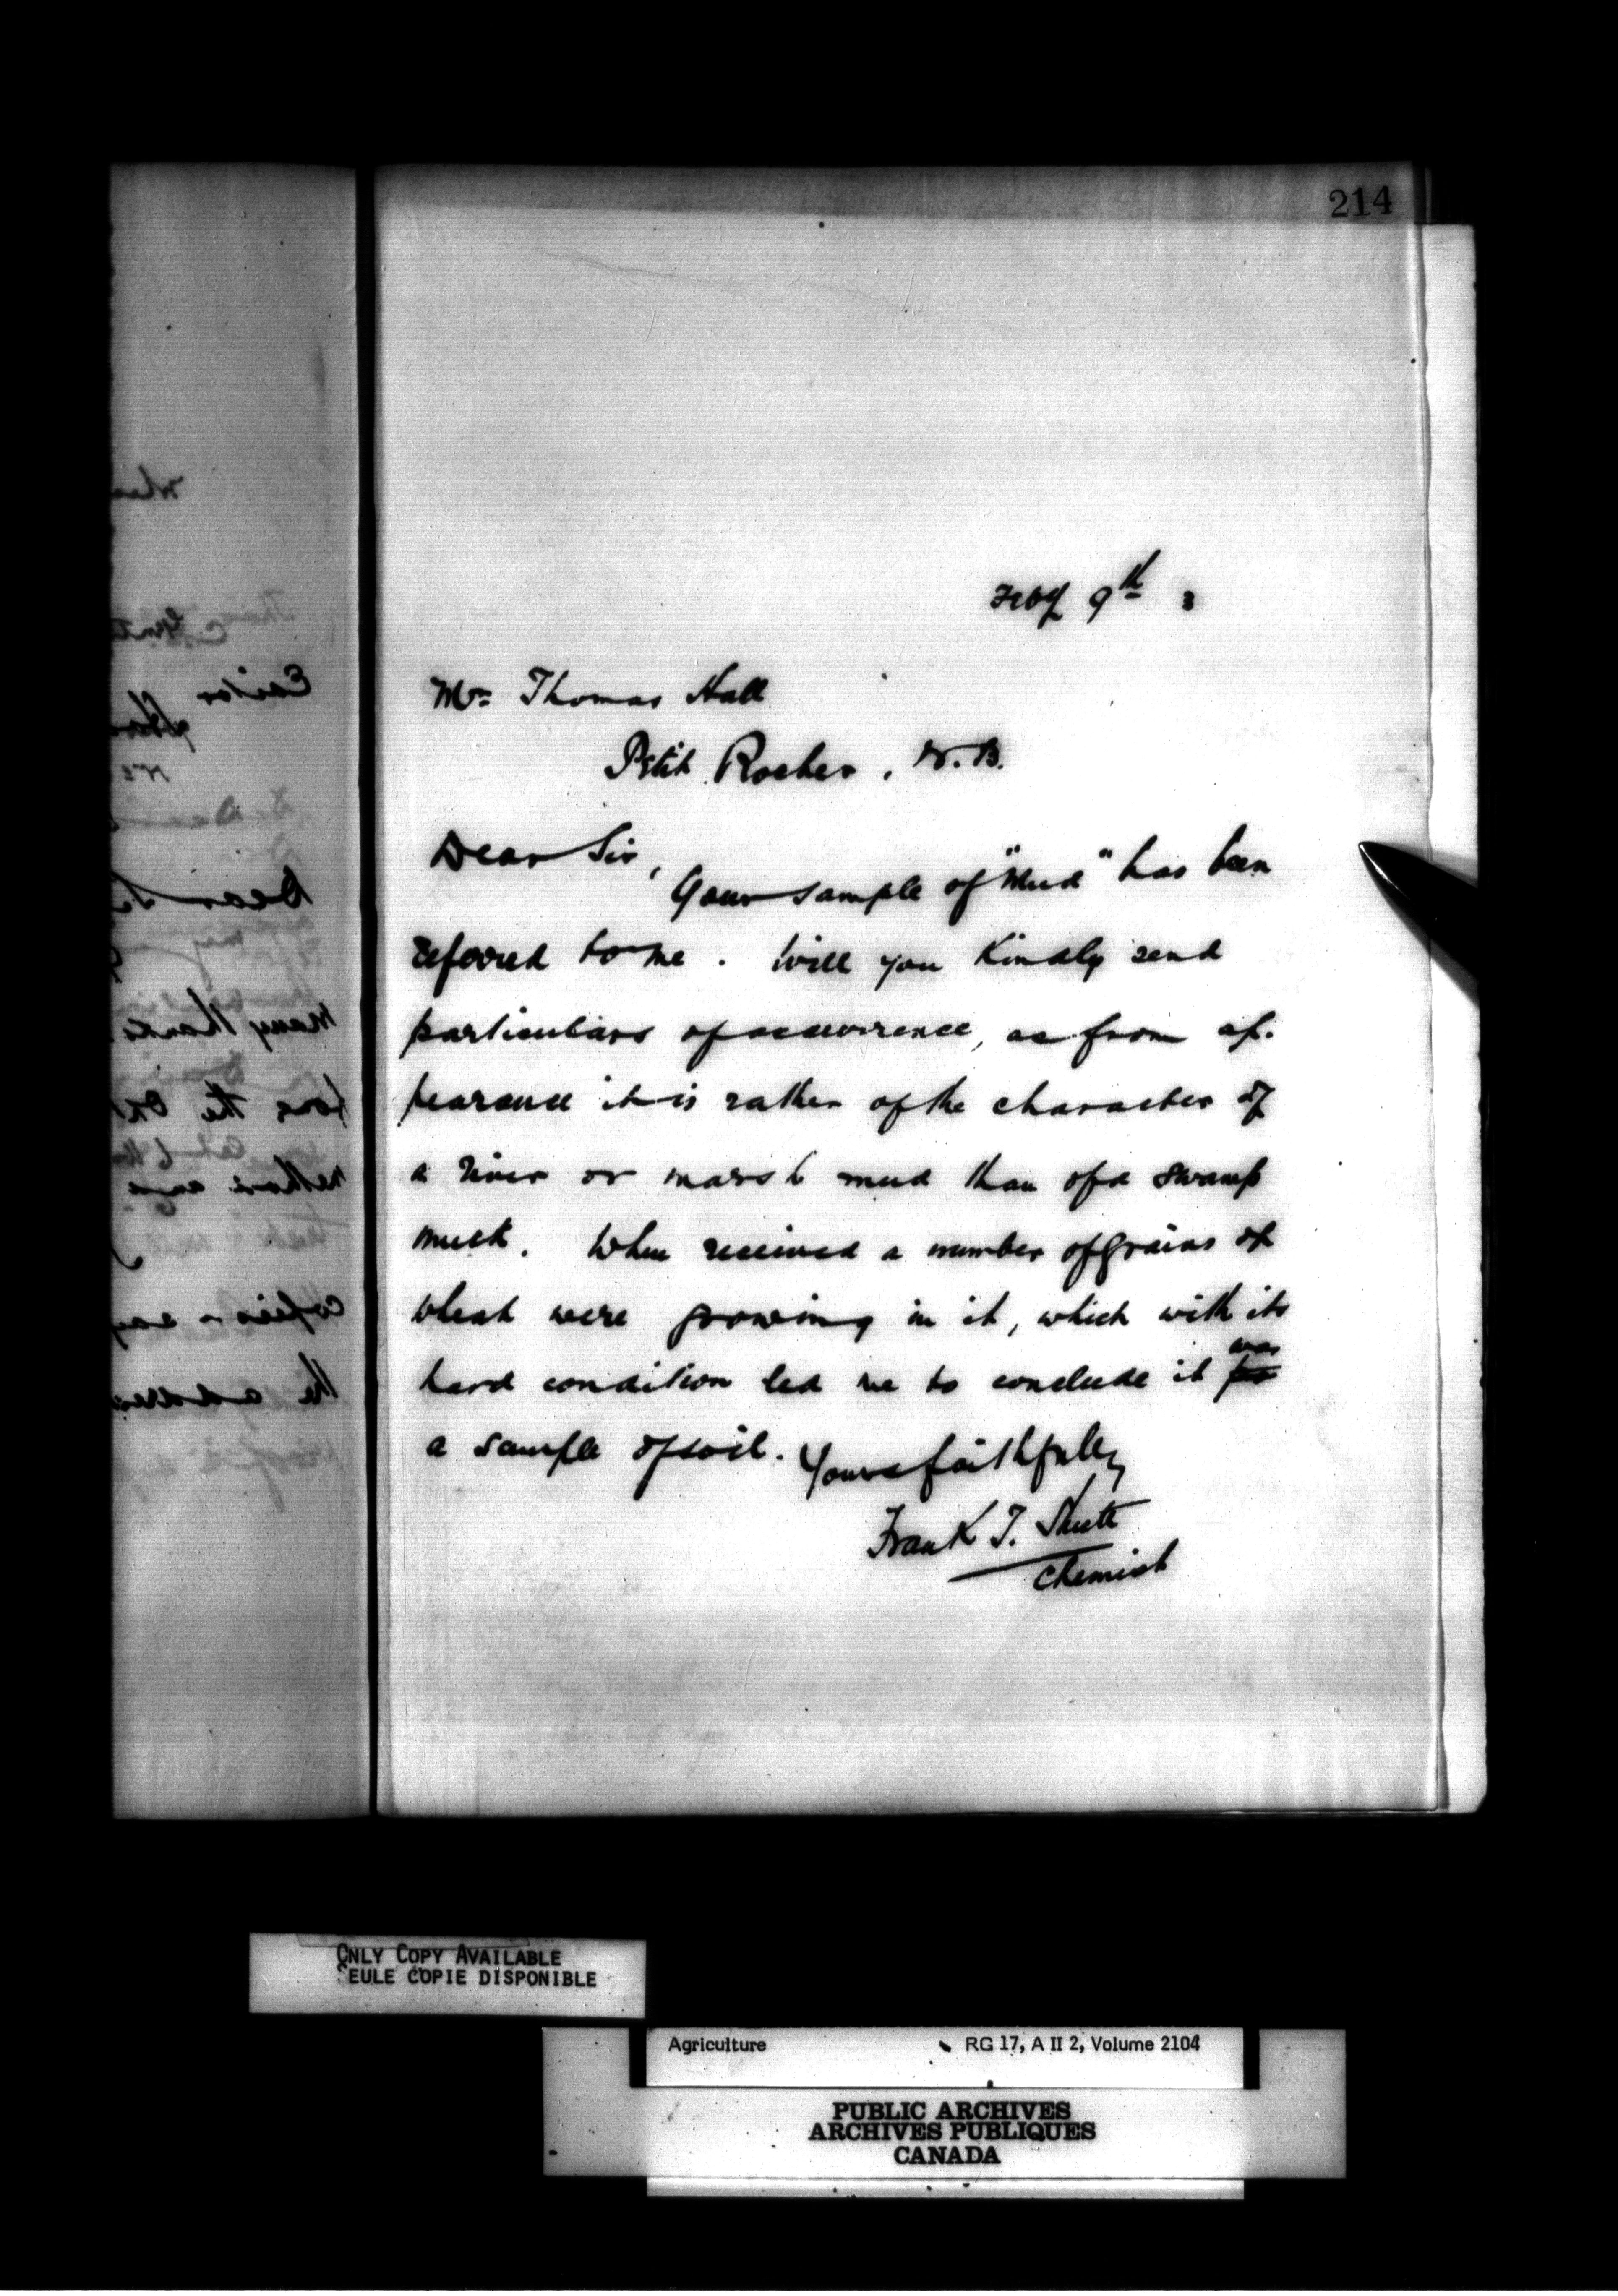 214
Feby 9th 3
Mr Thomas Hall
Petit Rocher, N.B.
Dear Sir,
Your sample of "Mud" has been
referred to me. Will you kindly send
particulars of occurrence, as from ap-
pearance it is rather of the character of
a river or marsh mud than of a swamp
muck. When received a number of grains of
wheat were growing in it, which with its
was
hard condition led me to conclude it
a sample of soil. Yours faithfully
Frank T. Shutt
Chemist
ONLY COPY AVAILABLE
SEULE COPIE DISPONIBLE
Agriculture RG 17, A II 2, Volume 2104
PUBLIC ARCHIVES
ARCHIVES PUBLIQUES
CANADA